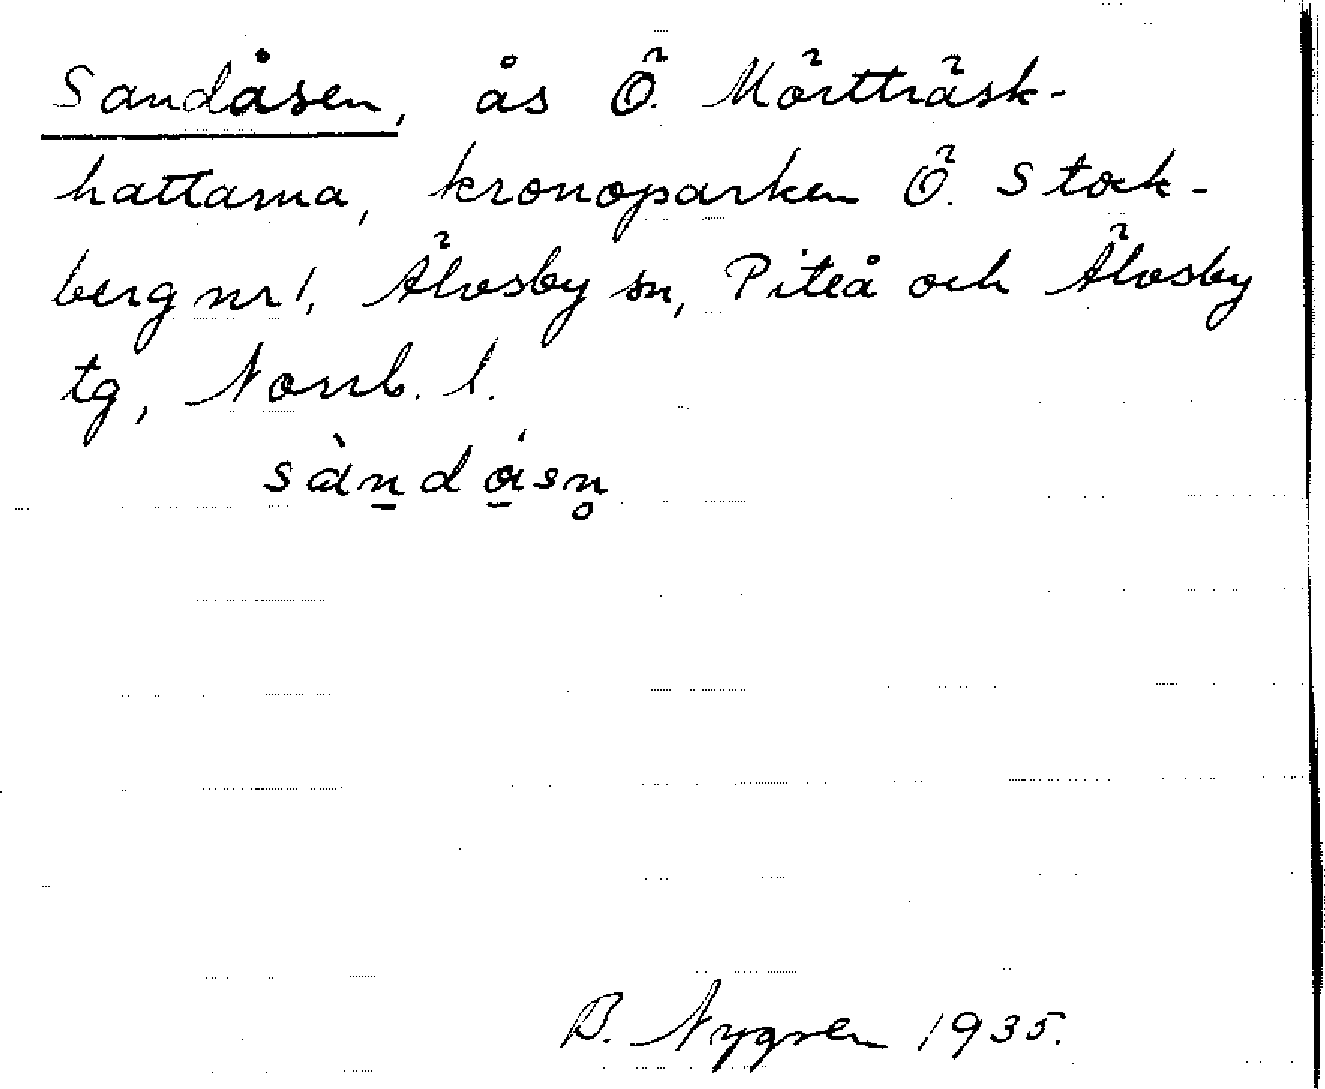 Sandåsen, ås Ö. Mörtträsk-
hattarna, kronoparken Ö. Stock-
berg nr 1, Älvsby sn, Piteå och Älvsby
tg, Norrb. l.
sàn̠dǻ̠sn̥
B. Nygren 1935.